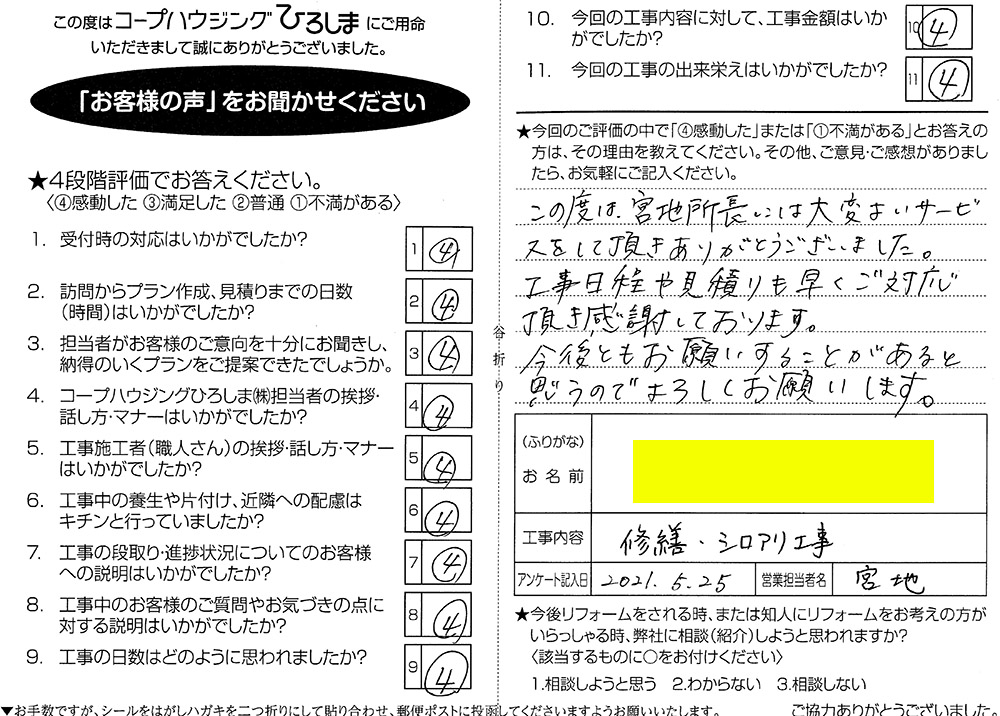 この度は コープハウジングひろしま にご用命
いただきまして誠にありがとうございました。
「お客様の声」をお聞かせください
★4段階評価でお答えください。
〈④感動した ③満足した ②普通 ①不満がある〉
1. 受付時の対応はいかがでしたか?
1 ④
2. 訪問からプラン作成、見積りまでの日数
(時間)はいかがでしたか?
2 ④
3. 担当者がお客様のご意向を十分にお聞きし、
納得のいくプランをご提案できたでしょうか。
3 ④
4. コープハウジングひろしま㈱担当者の挨拶・
話し方・マナーはいかがでしたか?
4 ④
5. 工事施工者(職人さん)の挨拶・話し方・マナー
はいかがでしたか?
5 ④
6. 工事中の養生や片付け、近隣への配慮は
キチンと行っていましたか?
6 ④
7. 工事の段取り・進捗状況についてのお客様
への説明はいかがでしたか?
7 ④
8. 工事中のお客様のご質問やお気づきの点に
対する説明はいかがでしたか?
8 ④
9. 工事の日数はどのように思われましたか?
9 ④
▼お手数ですが、シールをはがしハガキを二つ折りにして貼り合わせ、郵便ポストに投函してくださいますようお願いいたします。
谷折り
10. 今回の工事内容に対して、工事金額はいか
がでしたか?
10 ④
11. 今回の工事の出来栄えはいかがでしたか?
11 ④
★今回のご評価の中で「④感動した」または「①不満がある」とお答えの
方は、その理由を教えてください。その他、ご意見・ご感想がありまし
たら、お気軽にご記入ください。
この度は、宮地所長には大変よいサービ
スをして頂きありがとうございました。
工事日程や見積りも早くご対応
頂き感謝しております。
今後ともお願いすることがあると
思うのでよろしくお願いします。
(ふりがな)
お名前
工事内容 修繕・シロアリ工事
アンケート記入日 2021.5.25 営業担当者名 宮地
★今後リフォームをされる時、または知人にリフォームをお考えの方が
いらっしゃる時、弊社に相談(紹介)しようと思われますか?
〈該当するものに○をお付けください〉
1.相談しようと思う 2.わからない 3.相談しない
ご協力ありがとうございました。